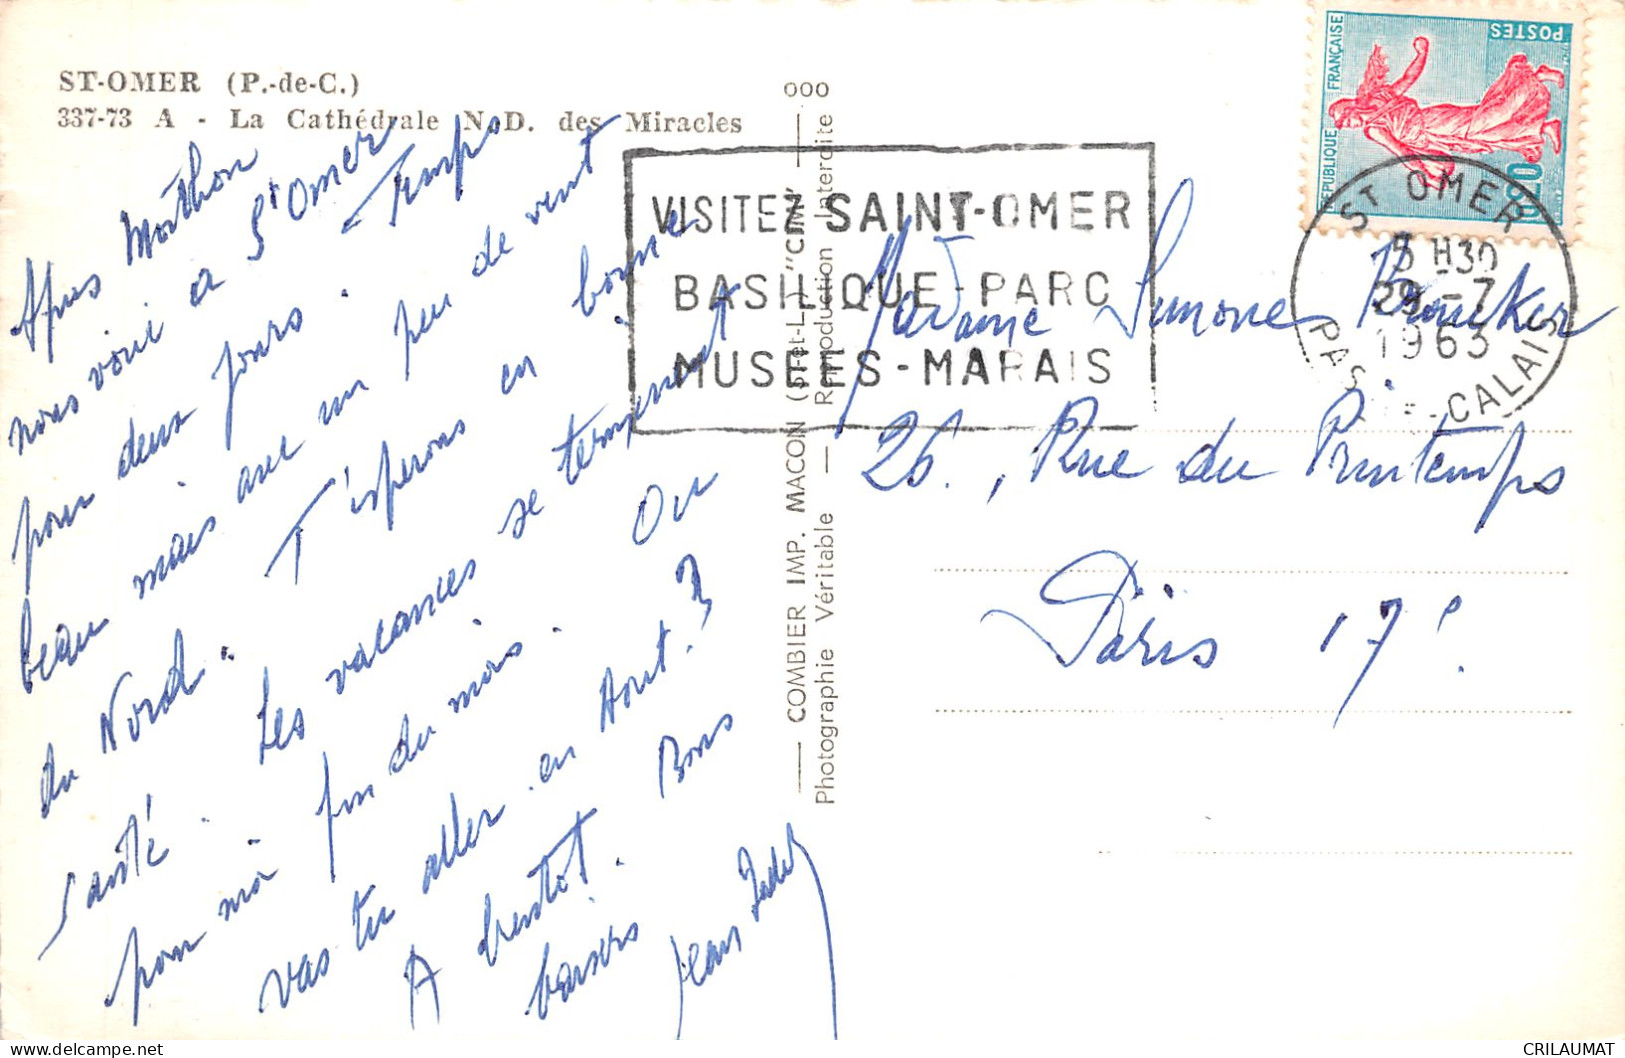 ST-OMER (P.-de-C.)
337-73 A - La Cathédrale N.-D. des Miracles
Après
nous voici a St Omer
pour deux jours. Temps
beau mais avec un peu de vent
du Nord. T'esperons en bonne
santé. Les vacances se terminent
pour moi fin du mois. Ou
vas tu aller en Aout?
A bientot. Bons
baisers
Jean
000
COMBIER IMP. MACON (S.-et-L.) "CIM"
Photographie Véritable — Reproduction Interdite
VISITEZ SAINT-OMER
BASILIQUE-PARC
MUSÉES-MARAIS
RÉPUBLIQUE FRANÇAISE
POSTES
0,20
ST OMER
H30
29-7
1963
PAS-DE-CALAIS
Madame Simone
26, Rue du Printemps
Paris 17e
delcampe.net
CRILAUMAT